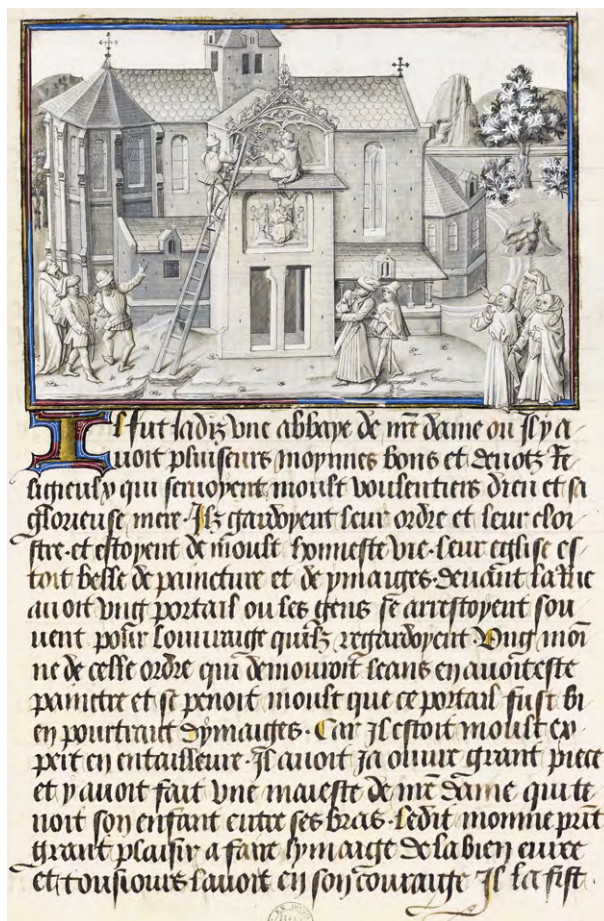 Il fut iadiz vne abbaye de nr̄e dame ou il y a
uoit pluiseurs moynnes bons et deuotz Re
ligieulx qui seruoyent moult voulentiers dieu et sa
glorieuse mere . Ilz gardoyent leur ordre et leur cloi
stre . et estoyent de moult honneste vie . leur eglise es
toit belle de paincture et de ymaiges . deuant la vie
auoit vng portail ou les gens se arrestoyent sou
uent pour louuraige quilz regardoyent . Vng moi
ne de celle ordre qui demouroit leans en auoit este
painctre et se penoit moult que ce portail fust bi
en pourtrait dymaiges . Car il estoit moult ex
pert en entailleure . Il auoit ia ouure grant piece
et y auoit fait vne maieste de nr̄e dame qui te
noit son enfant entre ses bras . Ledit moinne print
grant plaisir a faire lymaige de la bien euree
et tousiours lauoit en son couraige Il la fist .